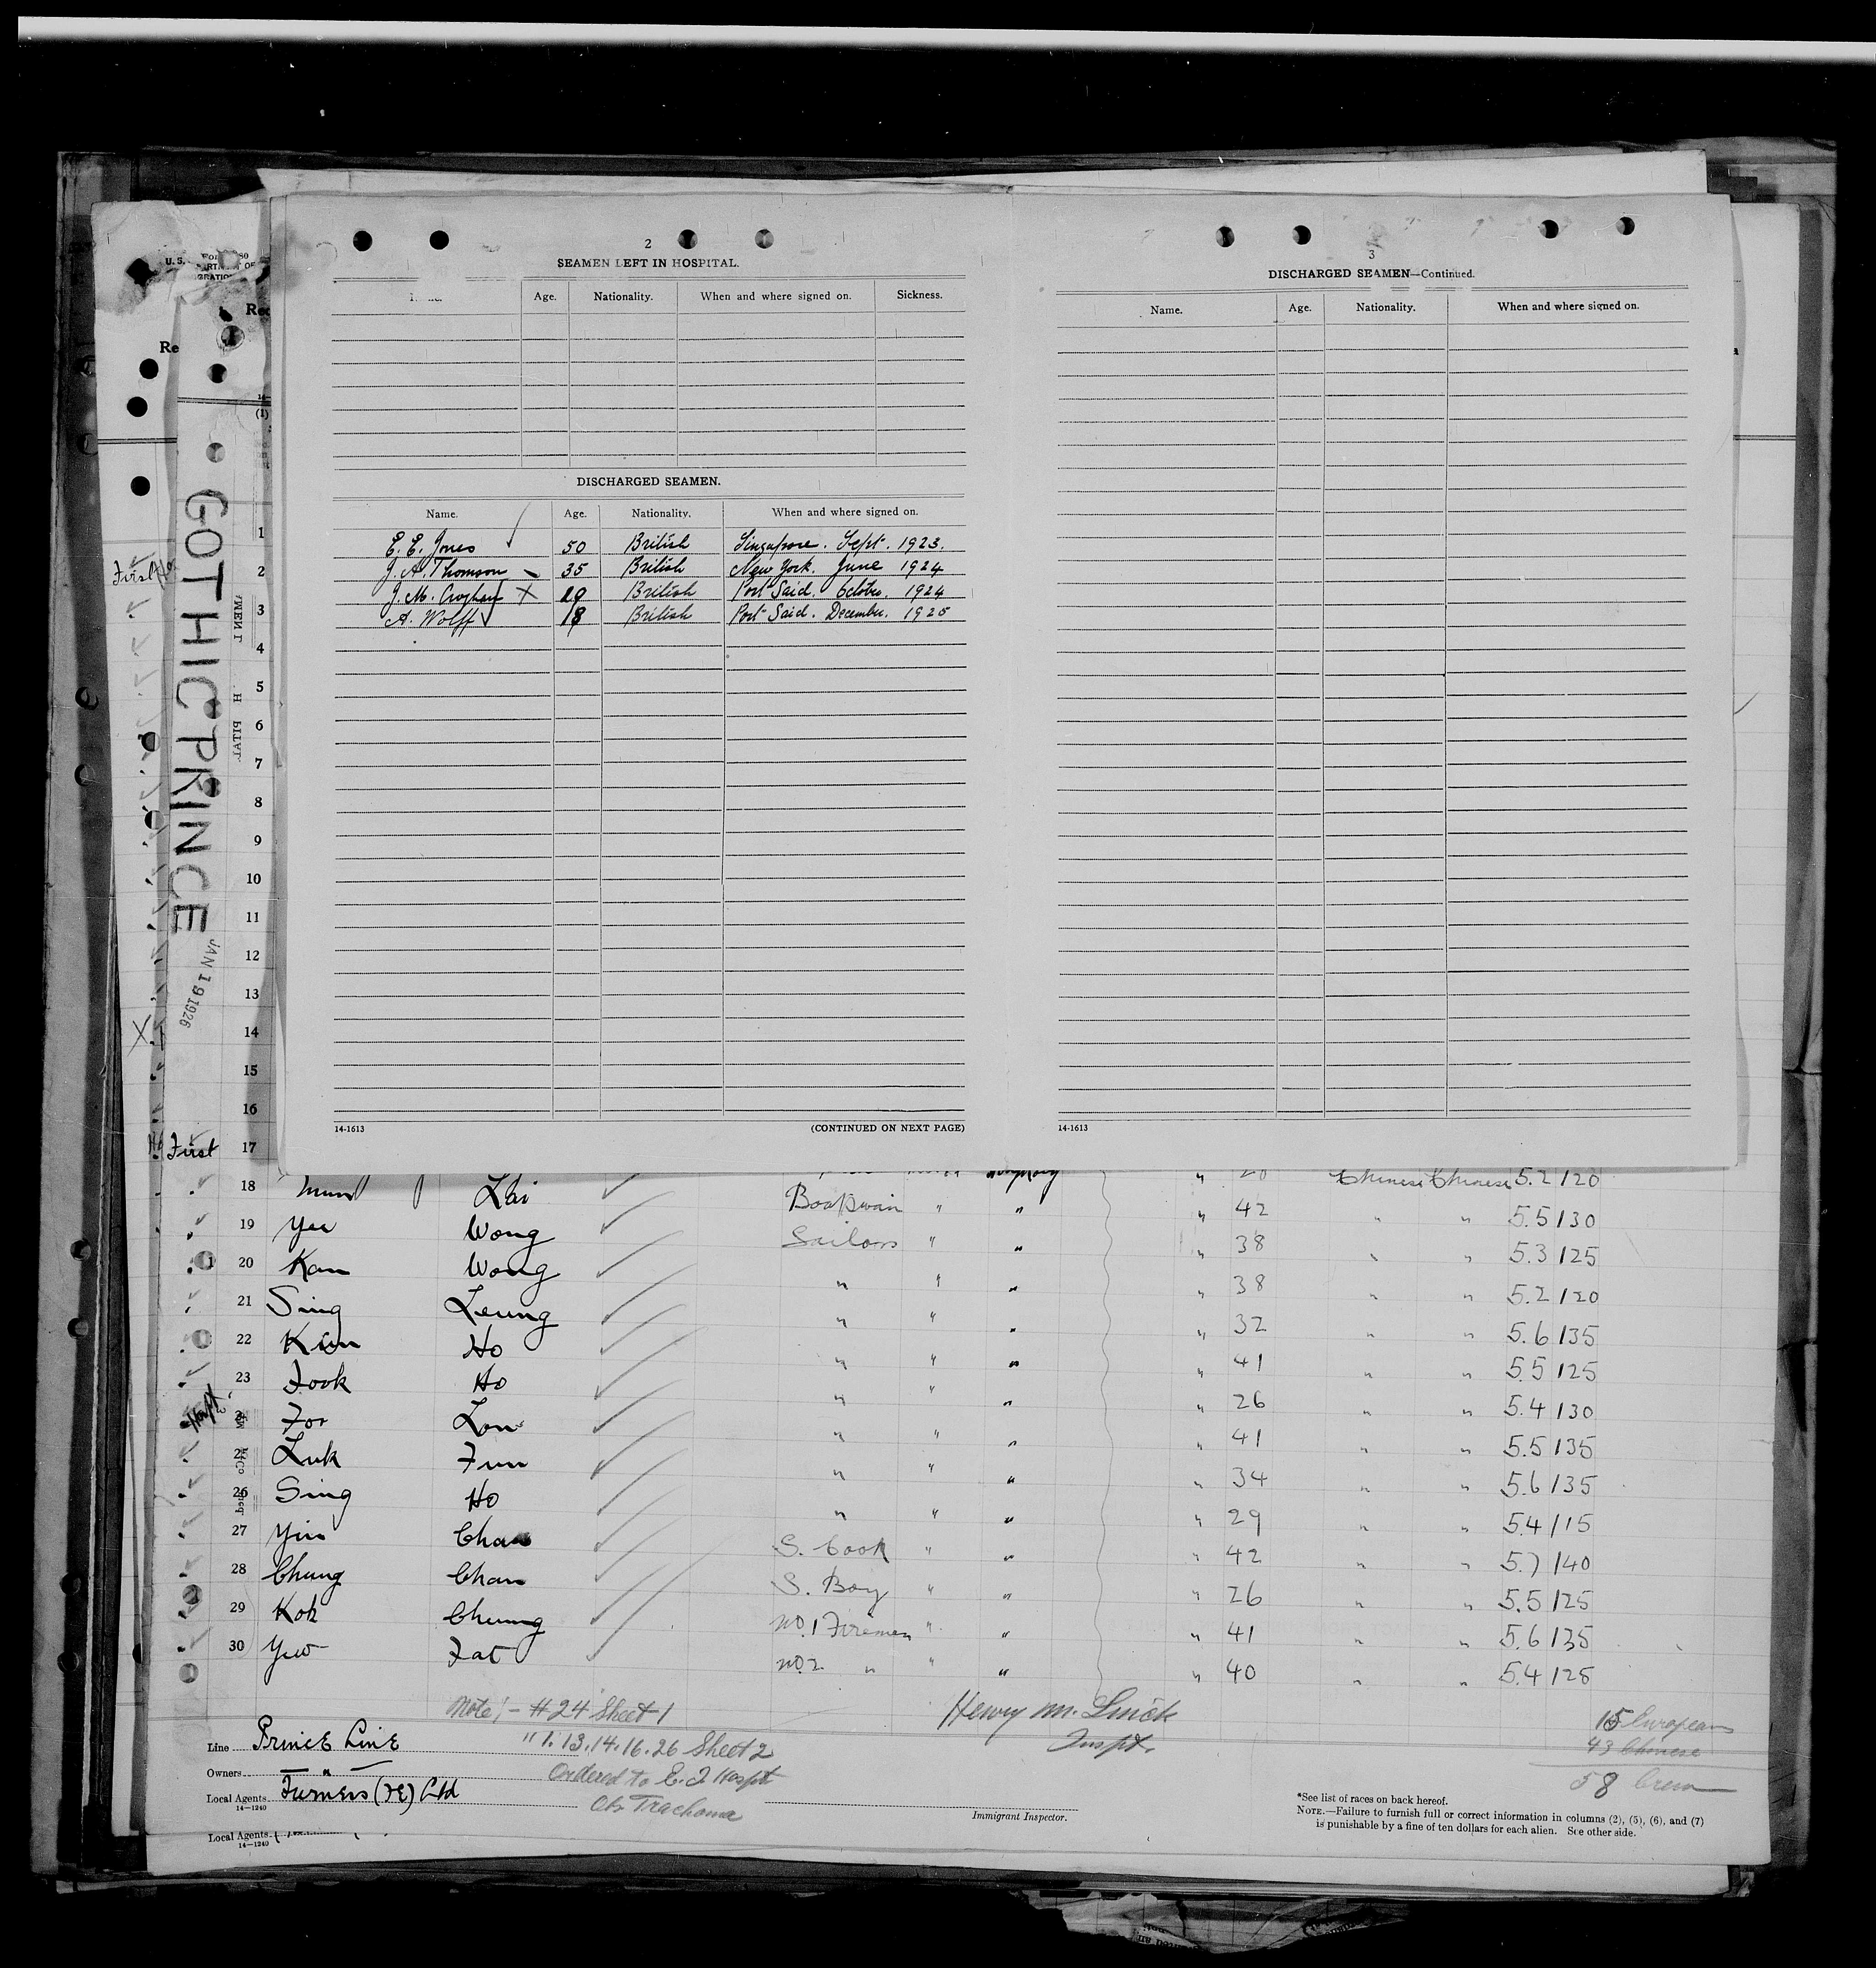 2
SEAMEN LEFT IN HOSPITAL.
Age. Nationality. When and where signed on. Sickness.
DISCHARGED SEAMEN.
Name. Age. Nationality. When and where signed on.
E. E. Jones 50 British Singapore. Sept. 1923.
J. A. Thomson 35 British New York. June 1924
J. M. British Port Said. October. 1924
A. Wolff 18 British Port Said. December. 1925
14-1613 (CONTINUED ON NEXT PAGE)
3
DISCHARGED SEAMEN—Continued.
Name. Age. Nationality. When and where signed on.
14-1613
U. S.
Re
First
GOTHIC PRINCE
JAN 19 1926
1
2
3
4
5
6
7
8
9
10
11
12
13
14
15
16
First 17
18 Lai Chinese Chinese 5.2 120
19 Yee Wong Boatswain " " " 42 " " 5.5 130
20 Kan Wong Sailors " " " 38 " " 5.3 125
21 Sing Leung " " " " 38 " " 5.2 120
22 Kun Ho " " " " 32 " " 5.6 135
23 Fook Ho " " " " 41 " " 5.5 125
Hospt. Foo Lou " " " " 26 " " 5.4 130
25 Luk Fun " " " " 41 " " 5.5 135
26 Sing Ho " " " " 34 " " 5.6 135
27 Yin Chan " " " " 29 " " 5.4 115
28 Chung Chan S. Cook " " " 42 " " 5.7 140
29 Kok Cheung S. Boy " " " 26 " " 5.5 125
30 Yew Fat No. 1 Firemen " " " 41 " " 5.6 135
No. 2 " " " " 40 " " 5.4 125
Note:- #24 Sheet 1
" 1. 13. 14. 16. 26 Sheet 2
Ordered to E. I. Hospt
Obs Trachoma
Henry M. Linck
Inspt.
Immigrant Inspector.
15 Europeans
43 Chinese
58 Crew
Line Prince Line
Owners "
Local Agents Furness (FE) Ltd
14—1240
*See list of races on back hereof.
NOTE.—Failure to furnish full or correct information in columns (2), (5), (6), and (7)
is punishable by a fine of ten dollars for each alien. See other side.
Local Agents
14—1240